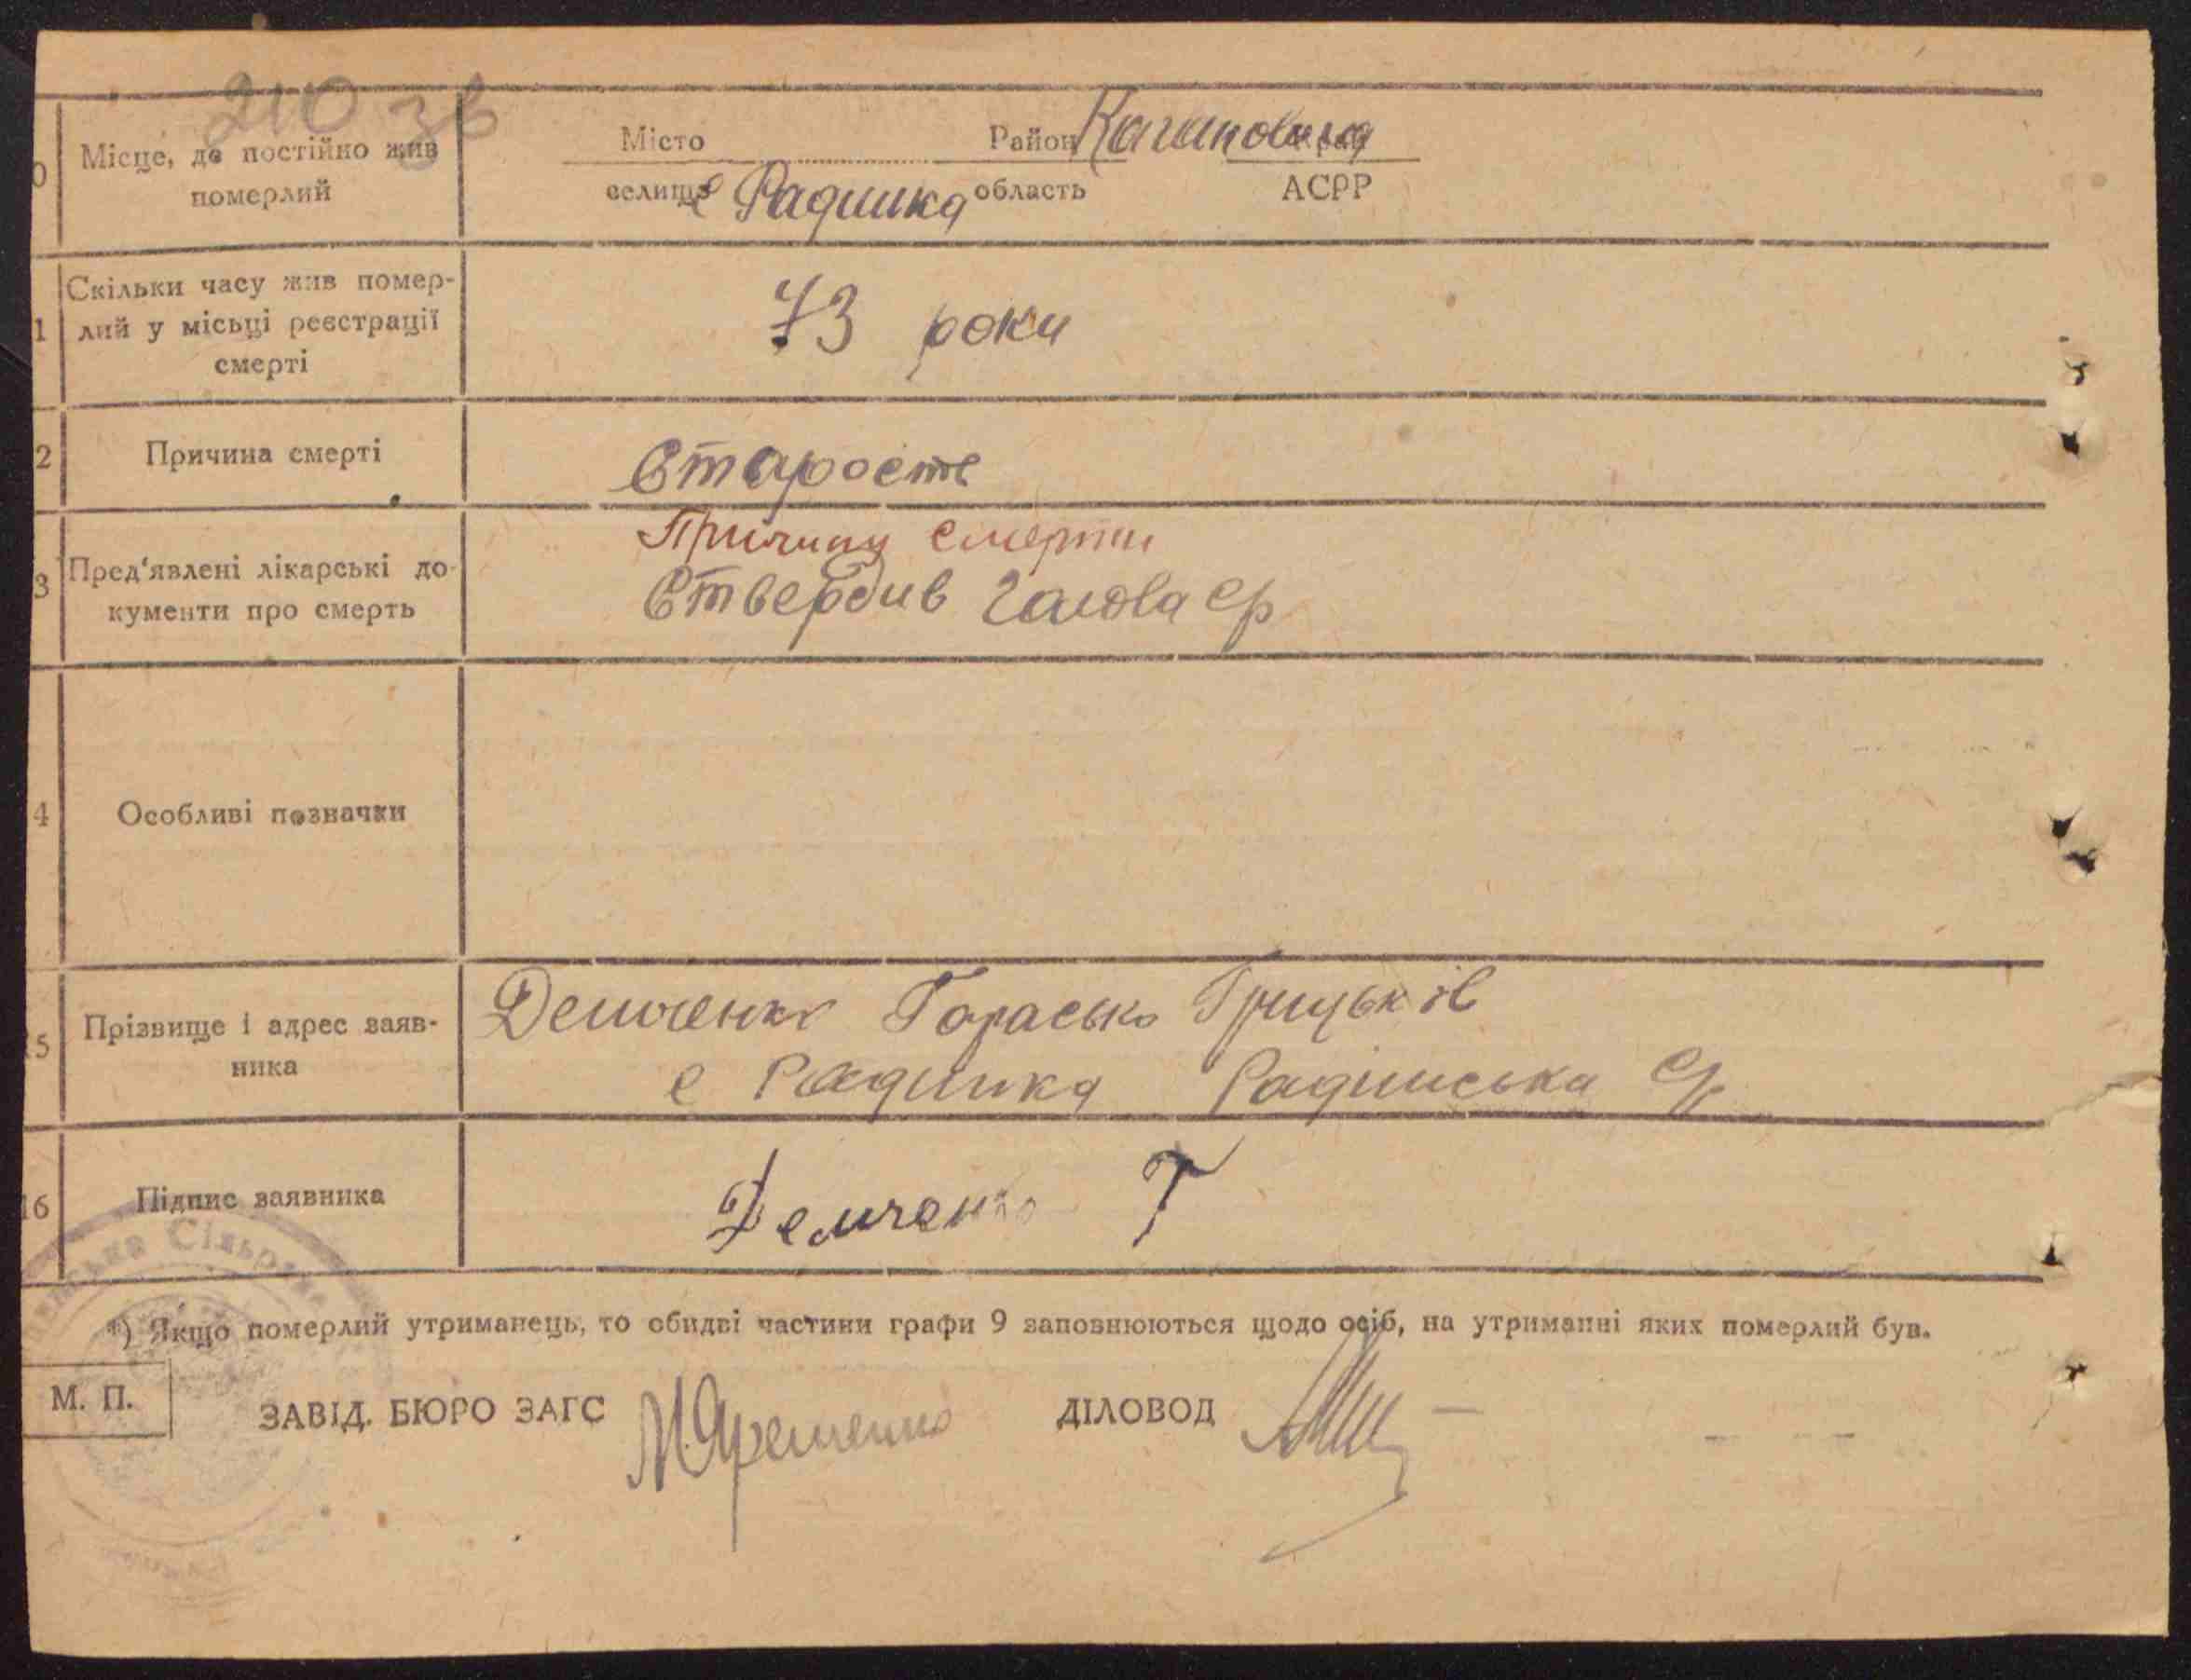 210 зв
0 Місце, де постійно жив померлий
Місто Район Кагановича край
селище с Радинка область АСРР
1 Скільки часу жив помер-
лий у місьці реєстрації
смерті
73 роки
2 Причина смерті
Старость
Причину смерти
3 Пред'явлені лікарські до-
кументи про смерть
Ствердив Голова ср
4 Особливі позначки
15 Прізвище і адрес заяв-
ника
Демченко Тарасько Грицьків
с Радинка Радинська ср
16 Підпис заявника
Демченко Т
Сільрада
*) Якщо померлий утриманець, то обидві частини графи 9 заповнюються щодо осіб, на утриманні яких померлий був.
М. П.
ЗАВІД. БЮРО ЗАГС ДІЛОВОД